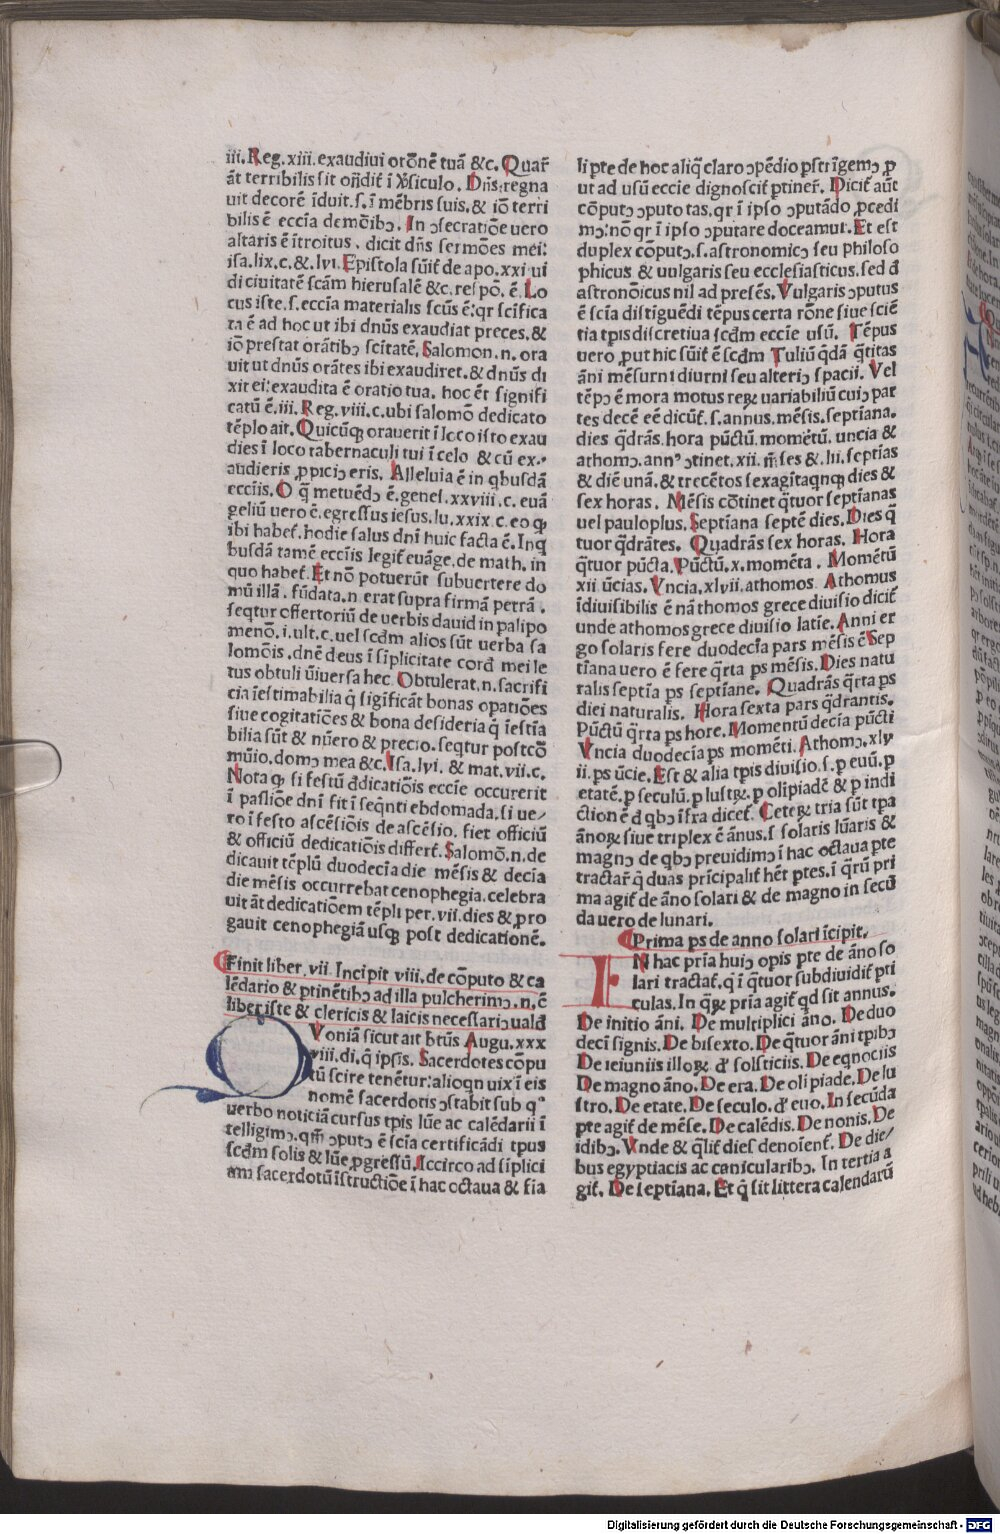 iii.Reg.xiii.exaudiui orōnē tuā &c.Quar̄
āt terribilis sit on̄dit̄ ī V̓siculo. Dn̄s regna
uit decorē īduit.s.ī mēbris suis.& iō terri
bilis ē eccīa demōibꝰ. In ɔsecratiōe uero
altaris ē ītroitus. dicit dn̄s sermōes mei:
isa.lix.c.&.lvi.Epistola sūit̄ de apo.xxi ui
di ciuitatē scām hierusalē &c.respō.ē.Lo
cus iste.s.eccīa materialis scūs ē:qr scīfica
ta ē ad hoc ut ibi dnūs exaudiat preces.&
iō prestat orātibꝰ scītatē.Salomon.n.ora
uit ut dnūs orātes ibi exaudiret.& dnūs di
xit ei:exaudita ē oratio tua. hoc ēt̄ signifi
catū ē.iii.Reg.viii.c.ubi salomō dedicato
tēplo ait.Quicūqꝫ orauerit ī loco isto exau
dies ī loco tabernaculi tui ī celo & cū ex.
audieris ꝓpiciꝰ eris. Alleluia ē in qbusdā
eccīis.O q̄ metuēdꝰ ē.genes.xxviii.c.euā
geliū uero ē.egressus iesus.lu.xxix.c.eo qꝫ
ibi habet̄.hodie salus dnī huic facta ē.Inq
busdā tamē eccīis legit̄ euāge.de math.in
quo habet̄.Et nō potuerūt subuertere do
mū illā. fūdata.n erat supra firmā petrā.
seqtur offertoriū de uerbis dauid in palipo
menō.i.ult.c.uel scdm alios sūt uerba sa
lomōis.dnē deus ī sīplicitate cord̄ mei le
tus obtuli ūiuersa hec. Obtulerat.n.sacrifi
cia īestimabilia q̄ sigificāt bonas opatiōes
siue cogitatiōes & bona desideria q̄ īestīa
bilia sūt & nūero & precio.seqtur postcō
mūio.domꝰ mea &c.Isa.lvi. & mat.vii.c.
Nota qꝫ si festū ddicatiōis eccie occurerit
ī passiōe dnī fit ī seqnti ebdomada.si ue/
ro ī festo ascēsiōis de ascēsio. fiet officiū
& officiū dedicatiōis differt̄. Salomō.n.de
dicauit tēplū duodecīa die mēsis & decīa
die mēsis occurrebat cenophegia.celebra
uit āt dedicatiōem tēpli per.vii.dies & pro
gauit cenophegiā usqꝫ post dedicationē.
Finit liber.vii. Incipit viii.de cōputo & ca
lēdario & ptinētibꝰ ad illa pulcherimꝰ.n.ē
liber iste & clericis & laicis necessariꝰ uald̄
QVoniā sicut ait btūs Augu.xxx
viii.di.q̄ ipsis. Sacerdotes cōpu
tū scire tenētur:alioqn uix ī eis
nomē sacerdotis ɔstabit sub qᵒ
uerbo noticiā cursus tpis lūe ac calēdarii ī
telligimꝰ.qm̄ ɔputꝰ ē scīa certificādi tpus
scdm solis & lūe ꝓgressū.Iccirco ad sīplici
am sacerdotū īstructiōe ī hac octaua & fia
li pte de hoc aliq̄ claro ɔpēdio pstrīgemꝰ ꝓ
ut ad usū eccie dignoscit̄ ptiner̄. Dicit̄ aūt
cōputꝰ ɔputo tas.qr ī ipso ɔputādo ꝓcedi
mꝰ:nō qr ī ipso ɔputare doceamur.Et est
duplex cōputꝰ.s.astronomicꝰ seu philoso
phicus & uulgaris seu ecclesiasticus.sed d̄
astronōicus nil ad presēs. Vulgaris ɔputus
ē scīa distiguēdi tēpus certa rōne siue sciē
tia tpis discretiua scdm eccīe usū. Tēpus
uero ꝓut hic sūit̄ ē scdm Tuliū qdā q̄titas
āni mēsurni diurni seu alteriꝰ spacii. Vel
tēpꝰ ē mora motus reꝝ uariabiliū cuiꝰ par
tes decē eē dicūt̄.s.annus.mēsis.septiana.
dies qdrās.hora pūctū.momētū. uncia &
athomꝰ.annꝰ ɔtinet.xii.mses &.lii.septias
& diē unā.& trecētos sexagītaqnqꝫ dies &
sex horas. Mēsis cōtinet q̄tuor septianas
uel pauloplus.Septiana septē dies.Dies q̄
tuor qdrātes. Quadrās sex horas. Hora
q̄tuor pūcta.Pūctū.x.momēta. Momētū
xii ūcias.Vncia.xlvii.athomos. Athomus
īdiuisibilis ē nā thomos grece diuisio dicit̄
unde athomos grece diuisio latīe.Anni er
go solaris fere duodecīa pars mēsis ē Sep
tiana uero ē fere q̄rta ps mēsis.Dies natu
ralis septīa ps septiane. Quadrās q̄rta ps
diei naturalis. Hora sexta pars qdrantis.
Pūctū q̄rta ps hore.Momentū decīa pūcti
Vncia duodecīa ps momēti.Athomꝰ.xlv
ii.ps ūcie.Est & alia tpis diuisio.s.p euū.p
etatē.p seculū.p lustꝝ.p olipiadē & p indi
ctionē d̄ qbꝰ īfra dicet̄. Ceteꝝ tria sūt tpa
ānoꝝ siue triplex ē ānus.s solaris lūaris &
magnꝰ de qbꝰ preuidimꝰ ī hac octaua pte
tractar̄ q̄ duas prīcipalit̄ hēt ptes.ī qrū pri
ma agit̄ de āno solari & de magno in secū
da uero de lunari.
Prima ps de anno solari īcipit.
IN hac prīa huiꝰ opis pte de āno so
lari tractat̄.q ī q̄tuor subdiuidit̄ pti
culas.In q̄ꝝ prīa agit̄ qd sit annus.
De initio āni. De multiplici āno. De duo
decī signis. De bisexto.De q̄tuor āni tpibꝰ
De ieiuniis illoꝝ d̄ solsticiis. De eqnociis
De magno āno.De era.De olipiade.De lu
stro.De etate.De seculo.d̄ euo.In secūda
pte agit̄ de mēse.De calēdis.De nonis.De
idibꝰ. Vnde & qlit̄ dies denoīent̄. De die/
bus egyptiacis ac canicularibꝰ. In tertia a
git̄. De septiana.Et q̄ sit littera calendarū
Digitalisierung gefördert durch die Deutsche Forschungsgemeinschaft - DFG